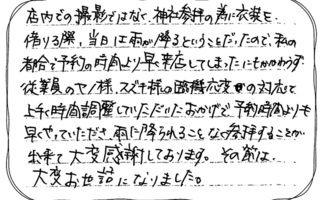 店内での撮影ではなく、神社参拝の為に衣装を
借りる際、当日は雨が降るということだったので、私の
都合で予約の時間より早く来店してしまったにもかかわらず
従業員のヤノ様、スズキ様の臨機応変の対応で
上手く時間調整していただいたおかげで予約時間よりも
早くやっていただき、雨に降られることなく参拝することが
出来て大変感謝しております。その節は、
大変お世話になりました。